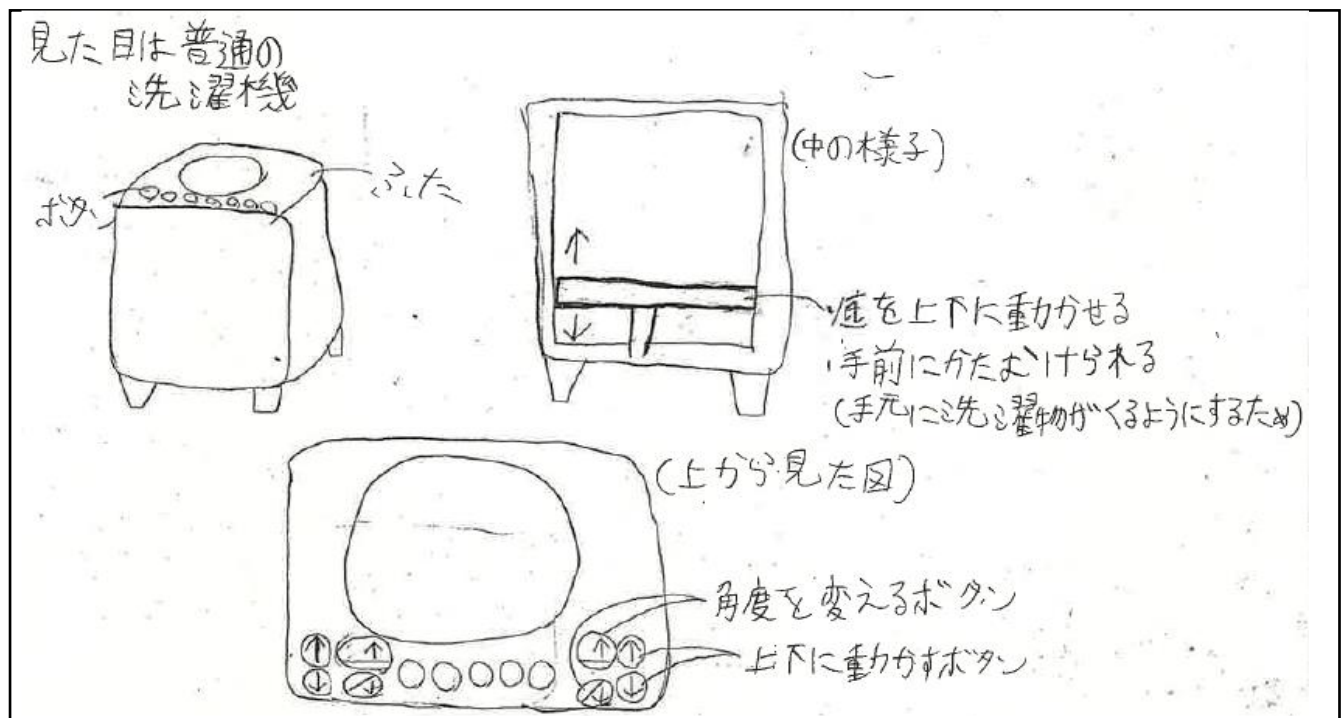 見た目は普通の
洗濯機
ボタン
ふた
(中の様子)
・底を上下に動かせる
・手前にかたむけられる
(手元に洗濯物がくるようにするため)
(上から見た図)
角度を変えるボタン
上下に動かすボタン